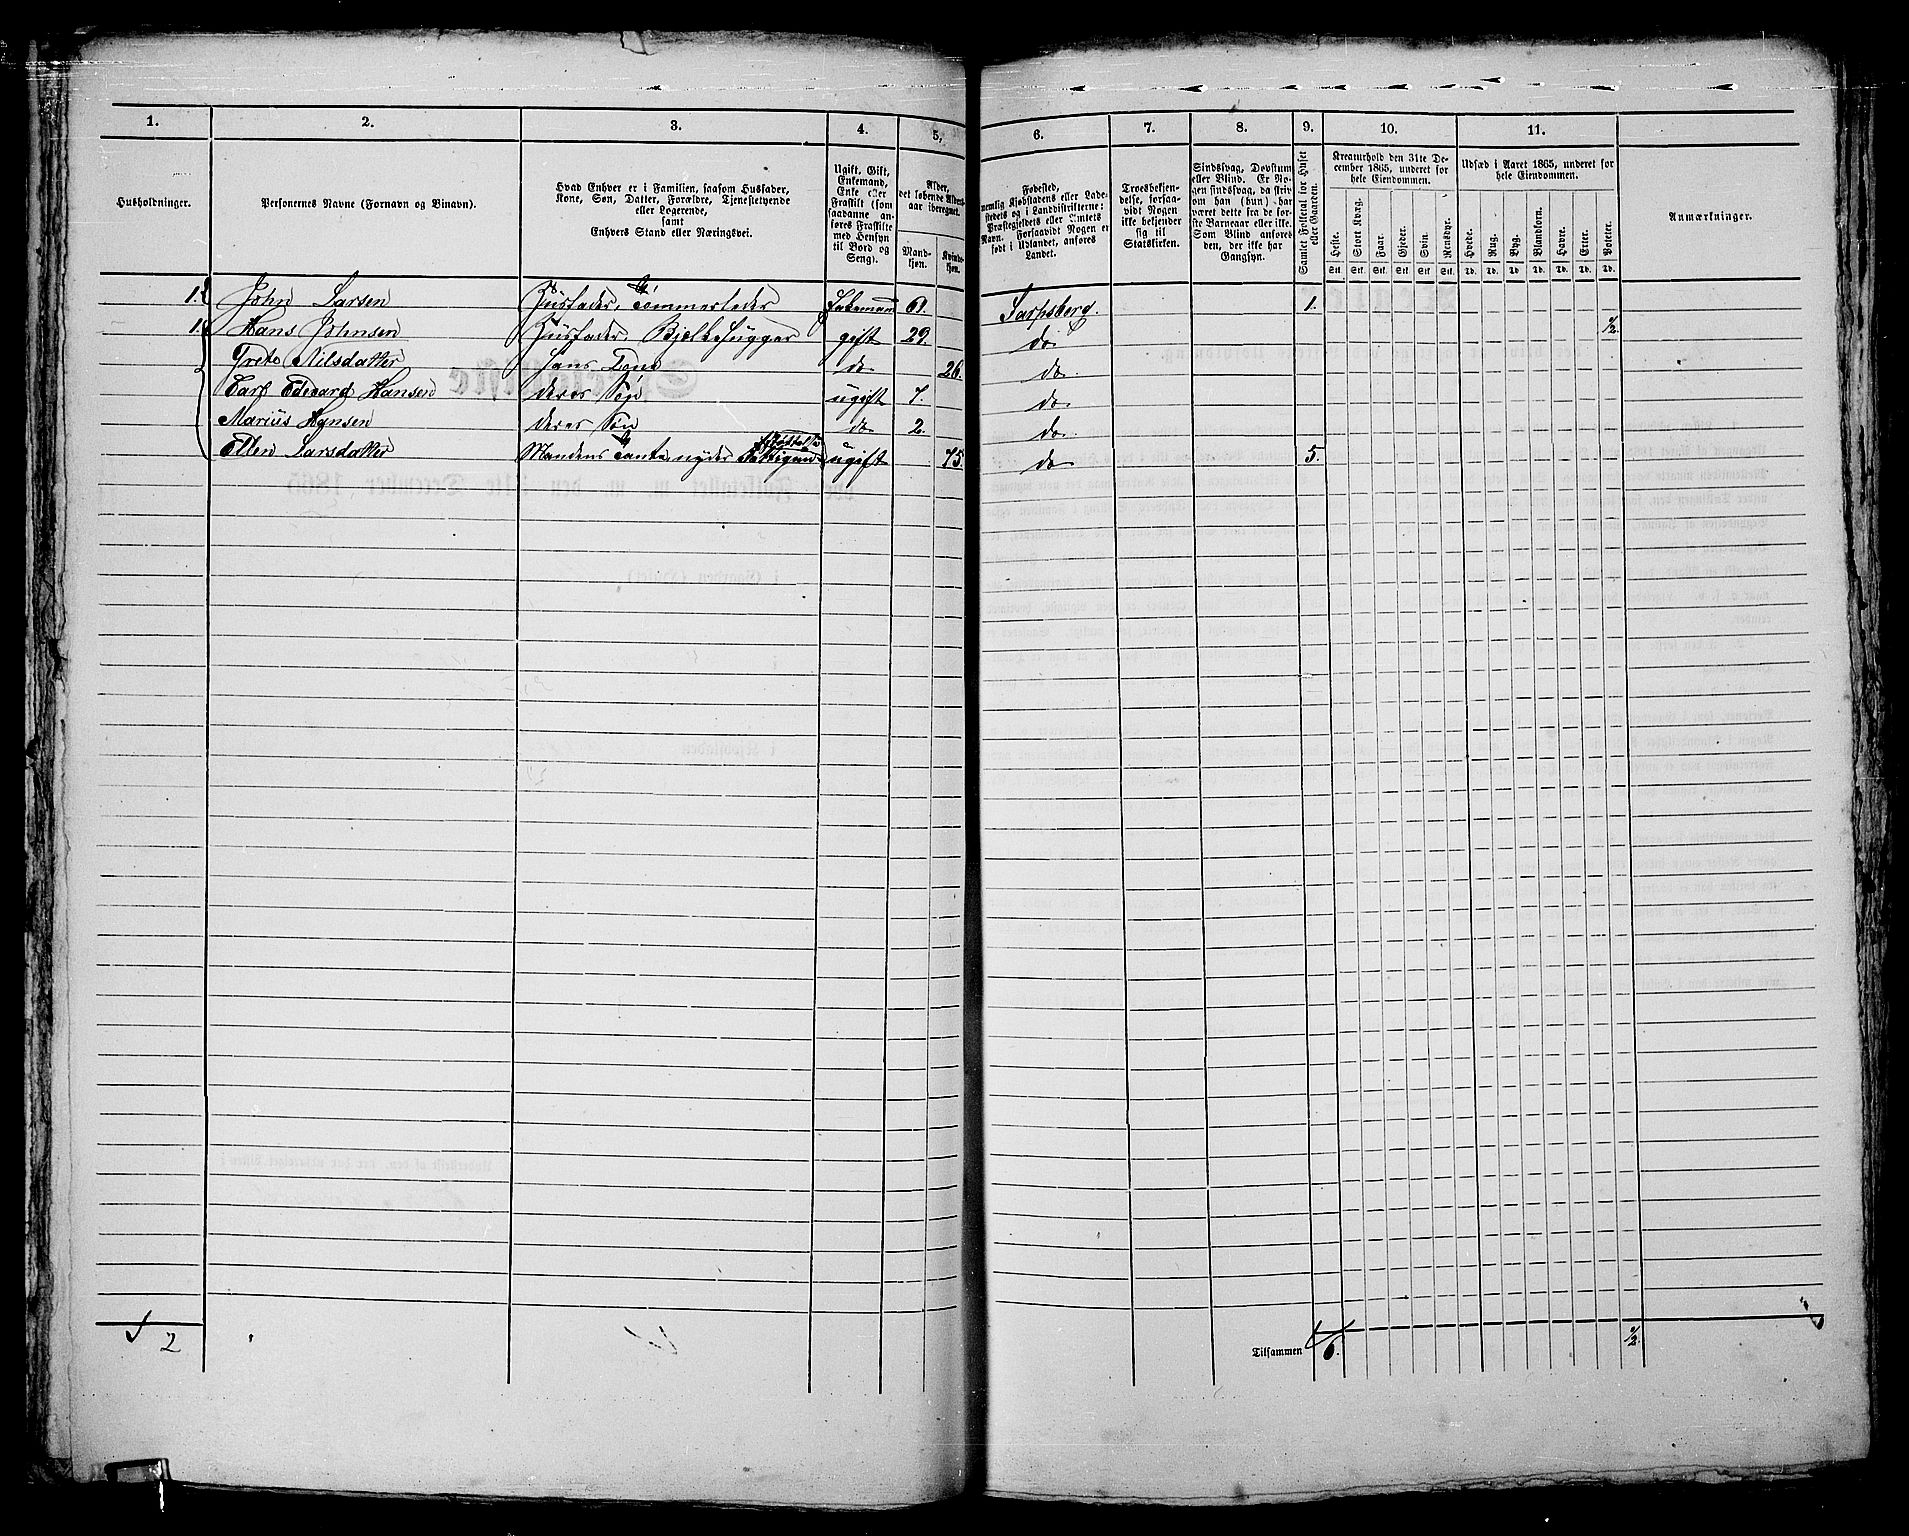 1. 2. 3. 4. 5. 6. 7. 8. 9. 10. 11.
Husholdninger.
Personernes Navne (Fornavn og Binavn).
Hvad Enhver er i Familien, saasom Husfader,
Kone, Søn, Datter, Forældre, Tjenestetyende
eller Logerende,
samt
Enhvers Stand eller Næringsvei.
Ugift, Gift,
Enkemand,
Enke eller
Fraskilt (som
saadanne an-
føres Fraskilte
med Hensyn
til Bord og
Seng).
Alder,
det løbende Alders-
aar iberegnet.
Mand-
kjøn.
Kvinde-
kjøn.
Fødested,
nemlig Kjøbstadens eller Lade-
stedets og i Landdistrikterne:
Præstegjeldets eller Amtets
Navn. Forsaavidt Nogen er
født i Udlandet, anføres
Landet.
Troesbekjen-
delse, forsaa-
vidt Nogen
ikke bekjender
sig til
Statskirken.
Sindssvag, Døvstum
eller Blind. Er No-
gen sindssvag, da skri-
ves om han (hun) har
været dette fra de før-
ste Barneaar eller ikke.
Som Blind anføres
den, der ikke har
Gangsyn.
Samlet Folketal for Huset
eller Gaarden.
Kreaturhold den 31te De-
cember 1865, underet for
hele Eiendommen.
Heste. Stort Kvæg. Faar. Gjeder. Svin. Rensdyr.
Stk. Stk. Stk. Stk. Stk. Stk.
Udsæd i Aaret 1865, underet for
hele Eiendommen.
Hvede. Rug. Byg. Blandkorn. Havre. Erter. Poteter.
Td. Td. Td. Td. Td. Td. Td.
Anmærkninger.
1. John Larsen Husfader, Tømmerleder Enkemand 61. Sarpsborg. 1.
1. Hans Johnsen Husfader, Bjælkehugger gift 29. do 1/2
Grete Nilsdatter Hans Kone do 26. do
Carl Edevard Hansen deres Søn ugift 7. do
Marius Hansen deres Søn do 2. do
Ellen Larsdatter Mandens Tante, nyder Fattigun- ugift 75. do 5.
2
Tilsammen 6. 1/2